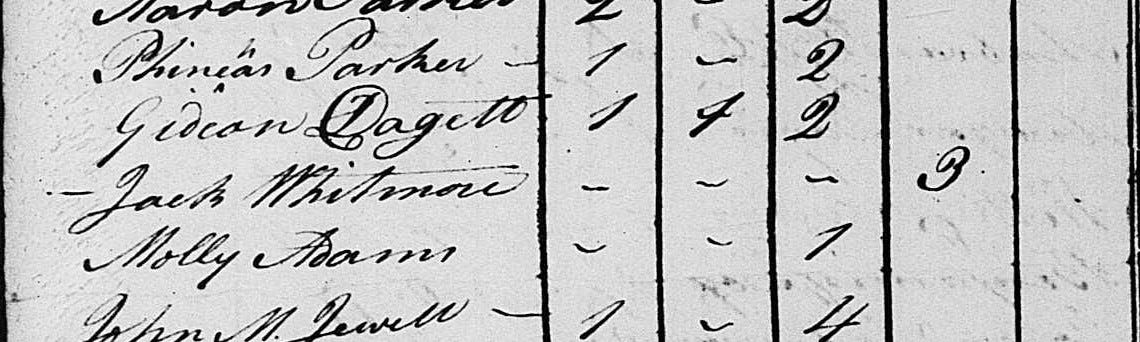 Aaron Parker 2 - 2
Phineas Parker - 1 - 2
Gideon Dagett 1 1 2
- Jack Whitmore - - - 3
Molly Adams - - 1
John M. Jewell - 1 - 4